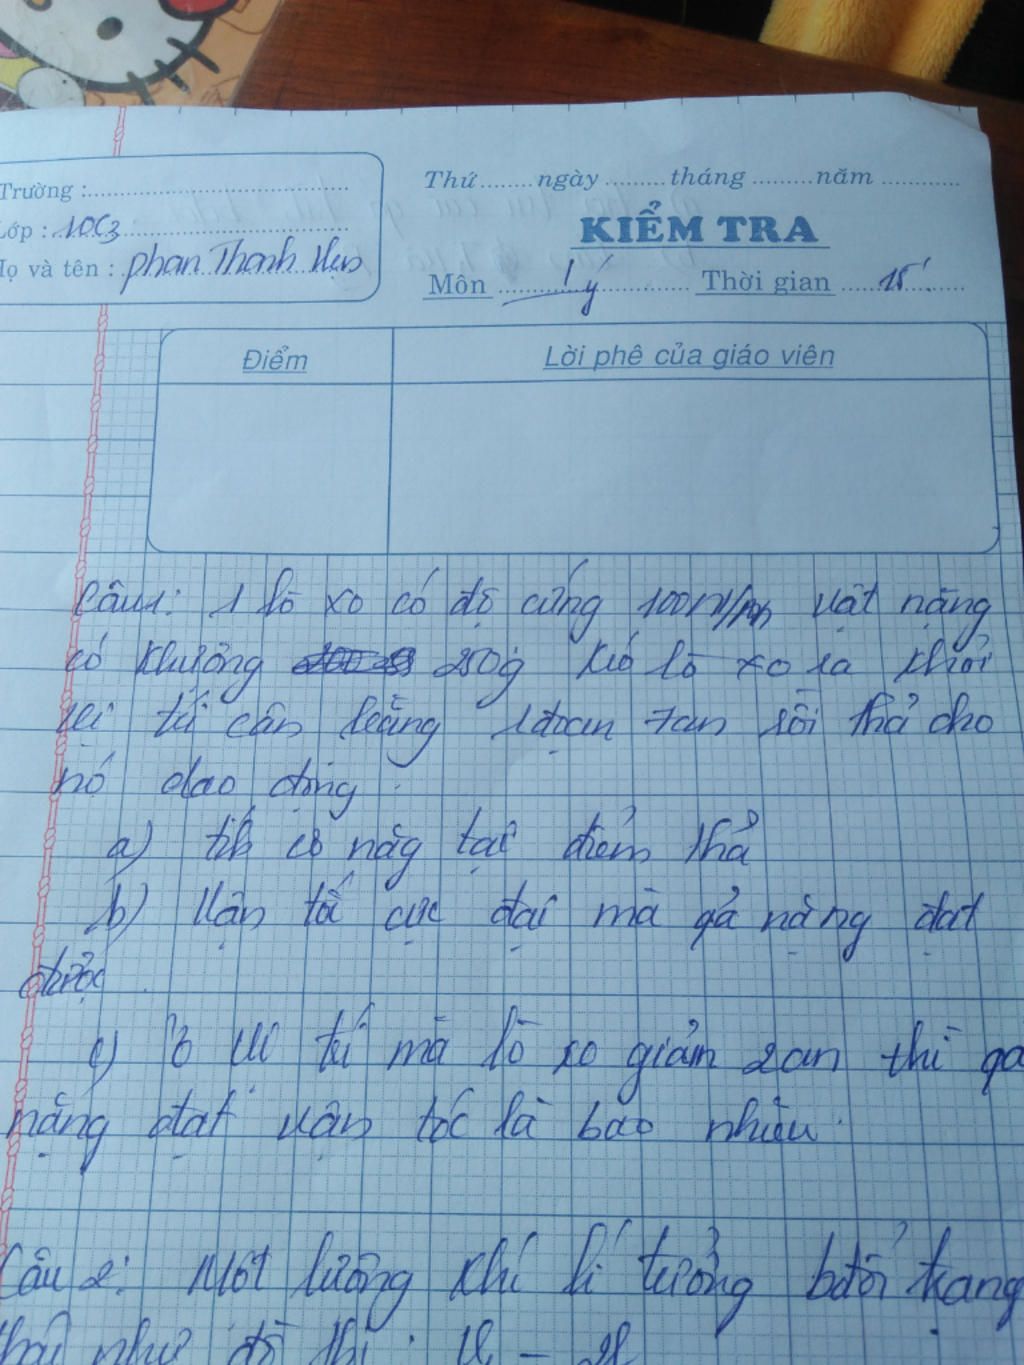 Trường :
Thứ ........ ngày ......... tháng ......... năm ............
Lớp : 10C3
KIỂM TRA
Họ và tên : phan Thanh
Môn lý Thời gian 15'
Điểm
Lời phê của giáo viên
Câu 1: 1 lò xo có độ cứng 100N/m vật nặng
có khượng 250g kéo lò xo ra khỏi
vị tí cân bằng 1 đoạn 7cm rồi thả cho
nó dao động
a) tíh cơ năg tại điểm thả
b) Vận tố cực đại mà qả nặng đạt
được
c) Ở vị tí mà lò xo giảm 2cm thì qả
nặng đạt vận tốc là bao nhiêu
Câu 2: Một lượng khí lí tưởng bđổi trạng
thái như đồ thị